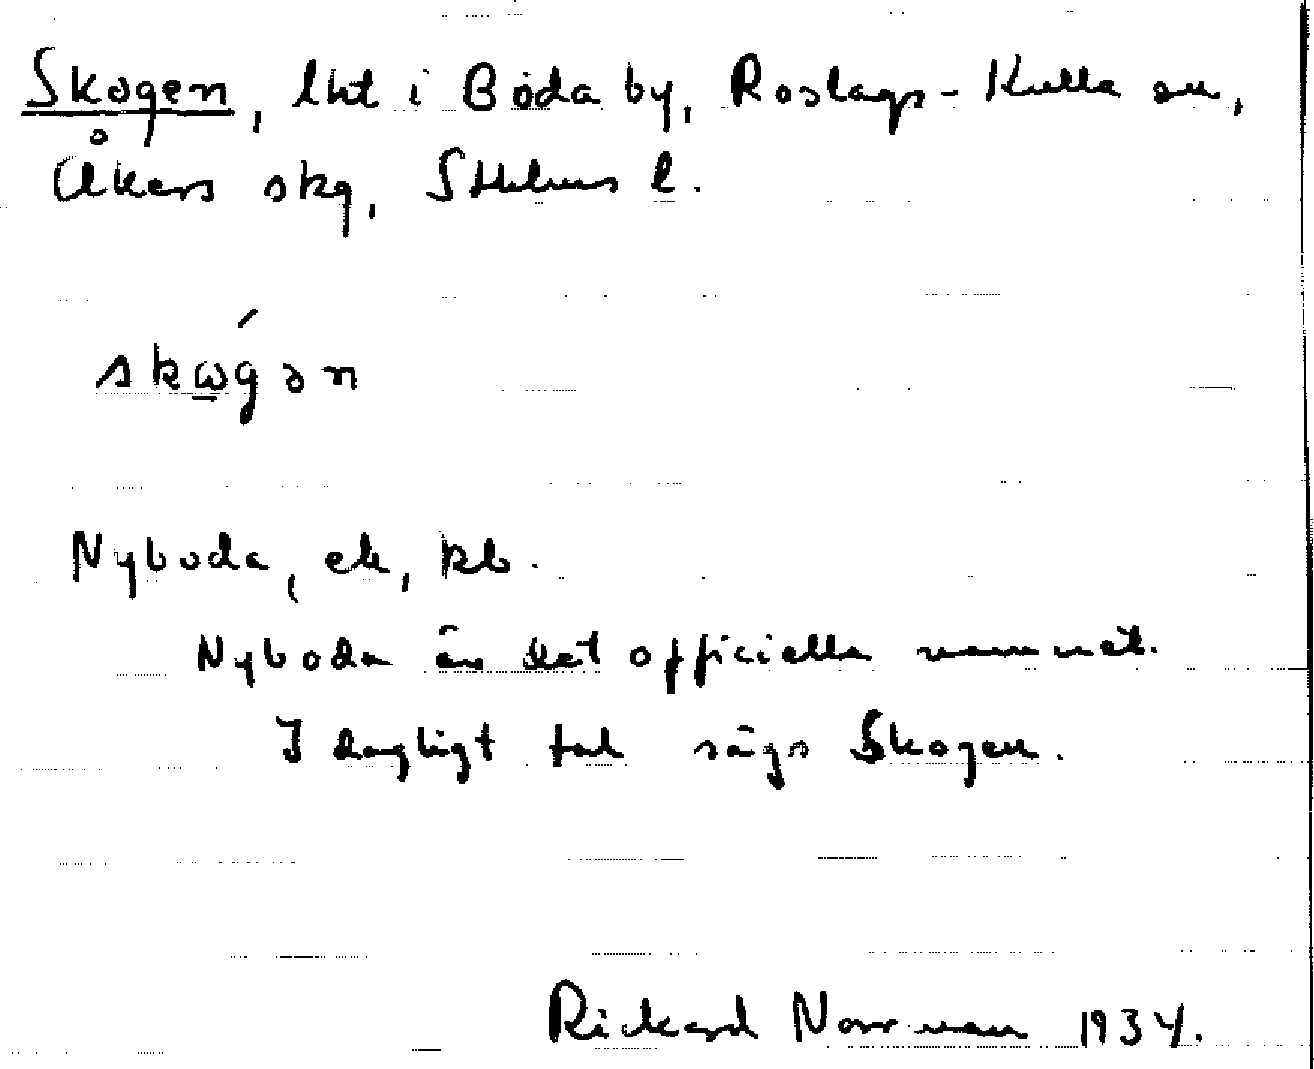 Skogen, lht i Boda by, Roslags-Kulla sn,
Åkers skg, Sthlms l.
skώ̲gən
Nyboda, ek, kb.
Nyboda är det officiella namnet.
I dagligt tal sägs Skogen.
Rickard Norrman 1934.